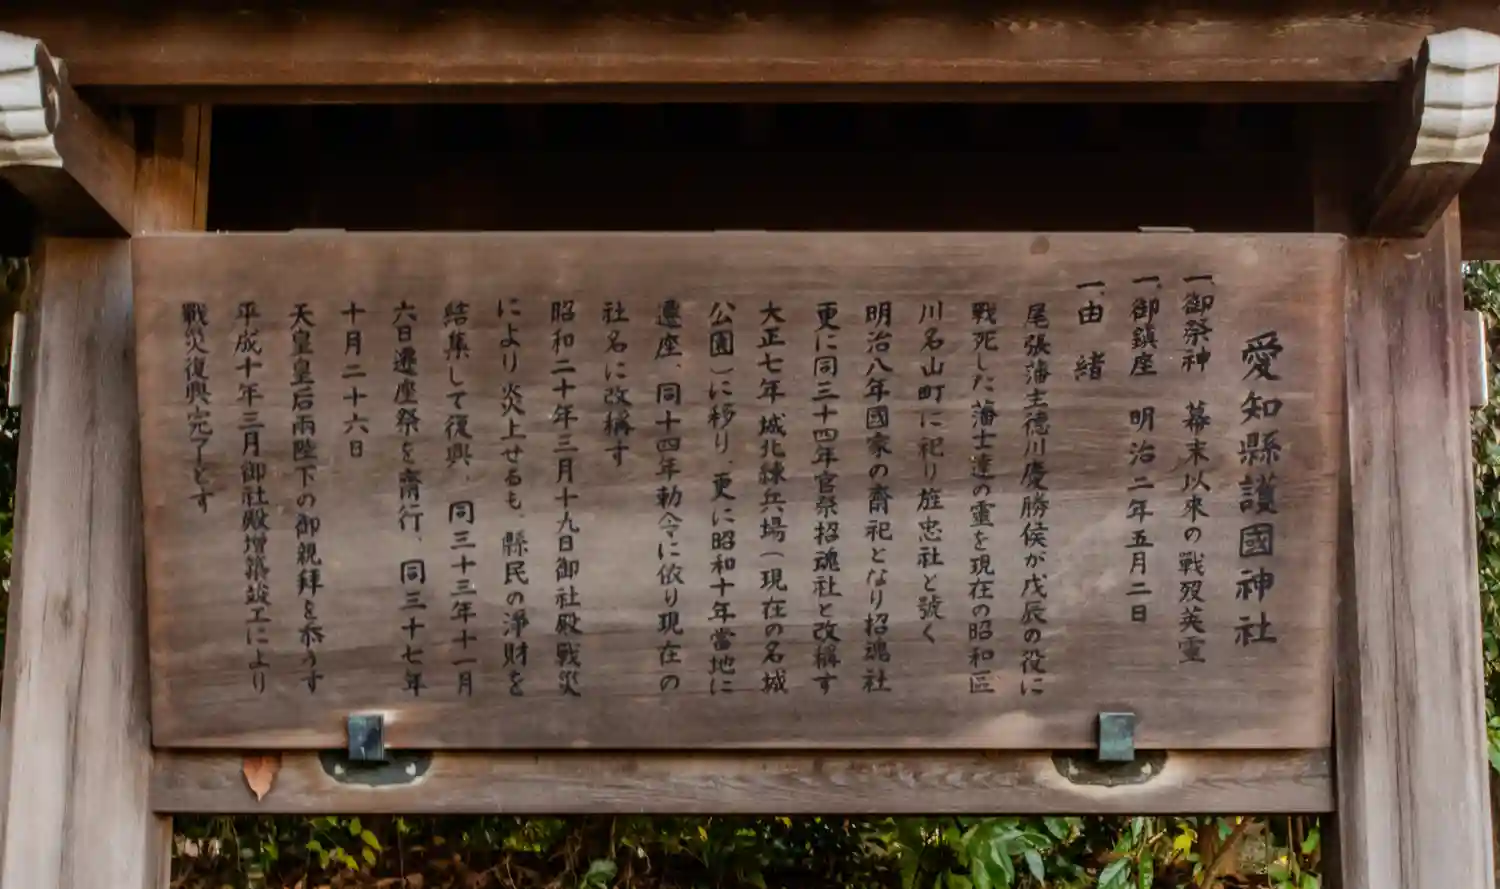 愛知縣護國神社
一、御祭神 幕末以來の戰歿英霊
一、御鎮座 明治二年五月二日
一、由 緒
尾張藩主徳川慶勝侯が戊辰の役に
戰死した藩士達の靈を現在の昭和区
川名山町に祀り旌忠社と號く
明治八年國家の齋祀となり招魂社
更に同三十四年官祭招魂社と改稱す
大正七年城北練兵場(現在の名城
公園)に移り、更に昭和十年當地に
遷座、同十四年勅令に依り現在の
社名に改稱す
昭和二十年三月十九日御社殿戰災
により炎上せるも、縣民の浄財を
結集して復興、同三十三年十一月
六日遷座祭を齋行、同三十七年
十月二十六日
天皇皇后両陛下の御親拜を忝うす
平成十年三月御社殿増築竣工により
戰災復興完了とす